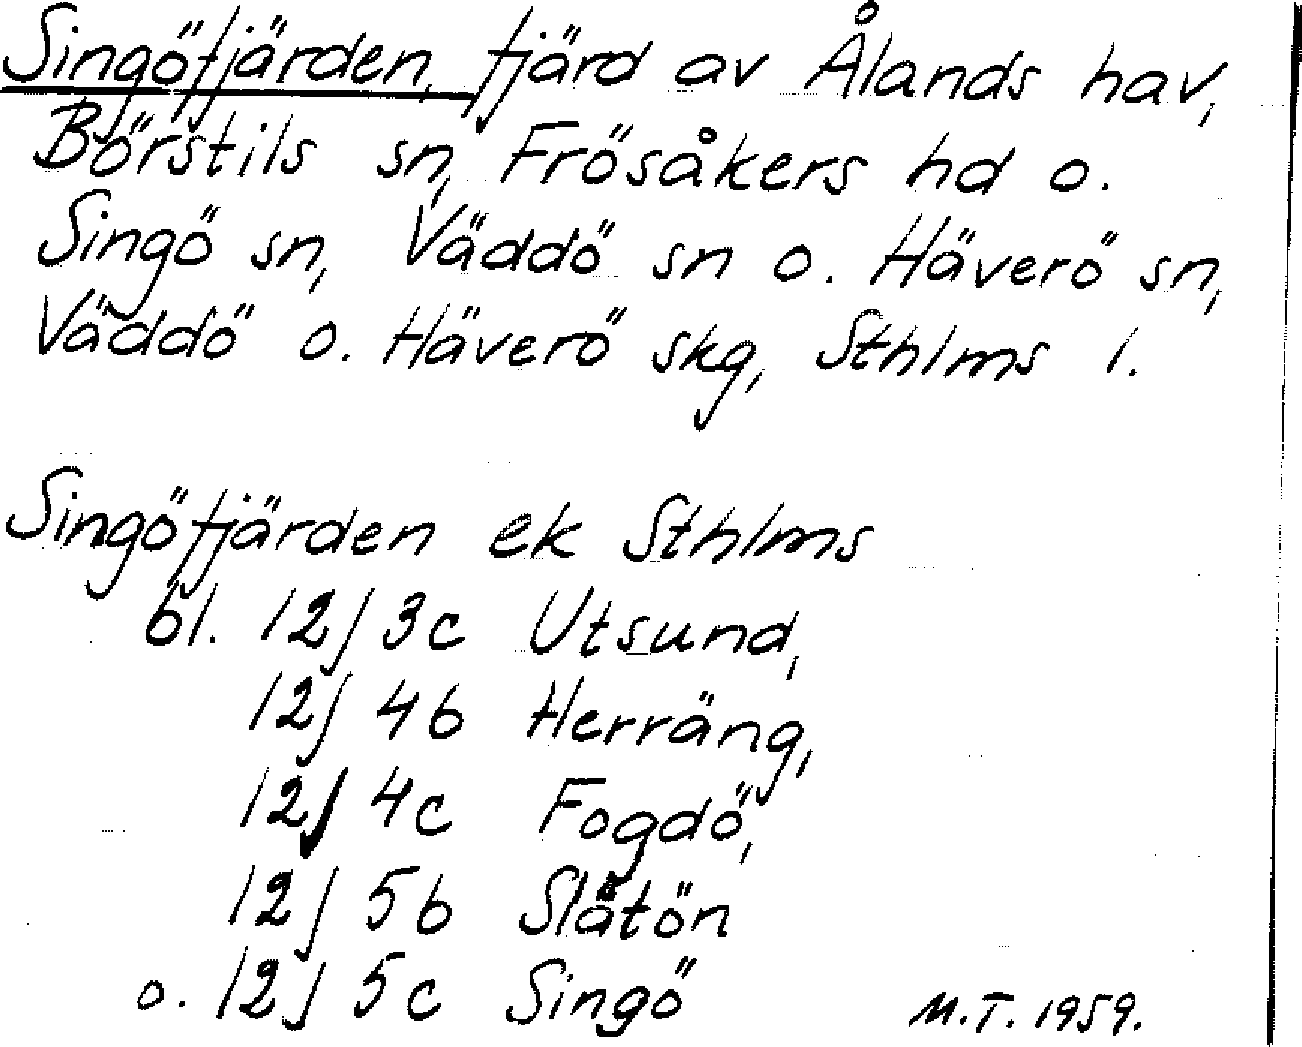 Singöfjärden, fjärd av Ålands hav,
Börstils sn, Frösåkers hd o.
Singö sn, Väddö sn o. Häverö sn,
Väddö o. Häverö skg, Sthlms l.
Singöfjärden ek Sthlms
bl. 12J 3c Utsund,
12J 4b Herräng,
12J 4c Fogdö,
12J 5b Slåtön
o. 12J 5c Singö
M.T. 1959.